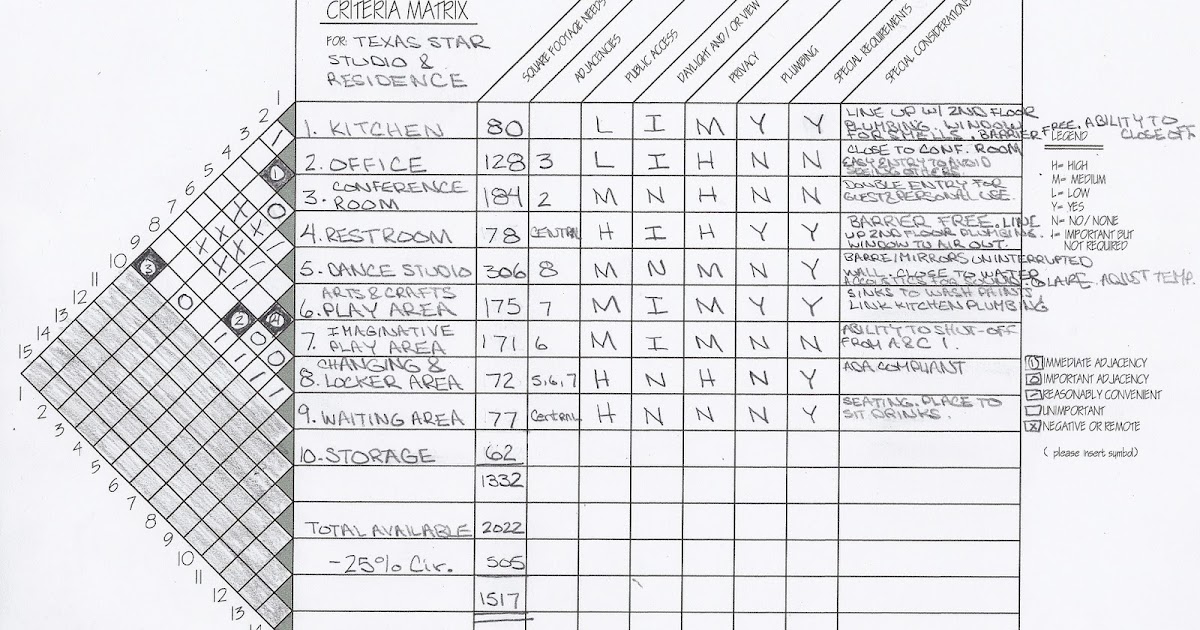 CRITERIA MATRIX
FOR: TEXAS STAR
STUDIO &
RESIDENCE
SQUARE FOOTAGE NEEDS
ADJACENCIES
PUBLIC ACCESS
DAYLIGHT AND/OR VIEW
PRIVACY
PLUMBING
SPECIAL REQUIREMENTS
SPECIAL CONSIDERATIONS
1. KITCHEN 80 L I M Y Y
LINE UP W/ 2ND FLOOR
PLUMBING. WINDOW
FOR SMELLS. BARRIER FREE. ABILITY TO
CLOSE OFF
2. OFFICE 128 3 L I H N N
CLOSE TO CONF. ROOM
EASY ENTRY TO AVOID
SEEING OTHERS
3. CONFERENCE
ROOM 184 2 M N H N N
DOUBLE ENTRY FOR
GUEST & PERSONAL USE.
4. RESTROOM 78 CENTRAL H I H Y Y
BARRIER FREE. LINE
UP 2ND FLOOR PLUMBING.
WINDOW TO AIR OUT.
5. DANCE STUDIO 306 8 M N M N Y
BARRE/MIRRORS UNINTERRUPTED
WALL. CLOSE TO WATER
ACOUSTICS FOR SOUND. GLAIRE. ADJUST TEMP.
ARTS & CRAFTS
6. PLAY AREA 175 7 M I M Y Y
SINKS TO WASH PAINTS
LINK KITCHEN PLUMBING
7. IMAGINATIVE
PLAY AREA 171 6 M I M N N
ABILITY TO SHUT-OFF
FROM A&C
CHANGING &
8. LOCKER AREA 72 5,6,7 H N H N Y
ADA COMPLIANT
9. WAITING AREA 77 Central H N N N Y
SEATING. PLACE TO
SIT DRINKS.
10. STORAGE 62
1332
TOTAL AVAILABLE 2022
-25% Cir. 505
1517
LEGEND
H= HIGH
M= MEDIUM
L= LOW
Y= YES
N= NO/NONE
I= IMPORTANT BUT
NOT REQUIRED
1 IMMEDIATE ADJACENCY
O IMPORTANT ADJACENCY
/ REASONABLY CONVENIENT
UNIMPORTANT
X NEGATIVE OR REMOTE
( please insert symbol)
1
2
3
4
5
6
7
8
9
10
11
12
13
14
15
1
2
3
4
5
6
7
8
9
10
11
12
13
14